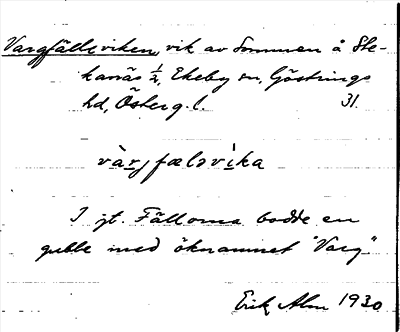 Vargfällsviken, vik av Sommen å Ste-
kanäs ½, Ekeby sn, Göstrings
hd, Österg. l. 31.
vàrjfæləvìka
I jt. Fällorna bodde en
gubbe med öknamnet "Varg"
Erik Alm 1930